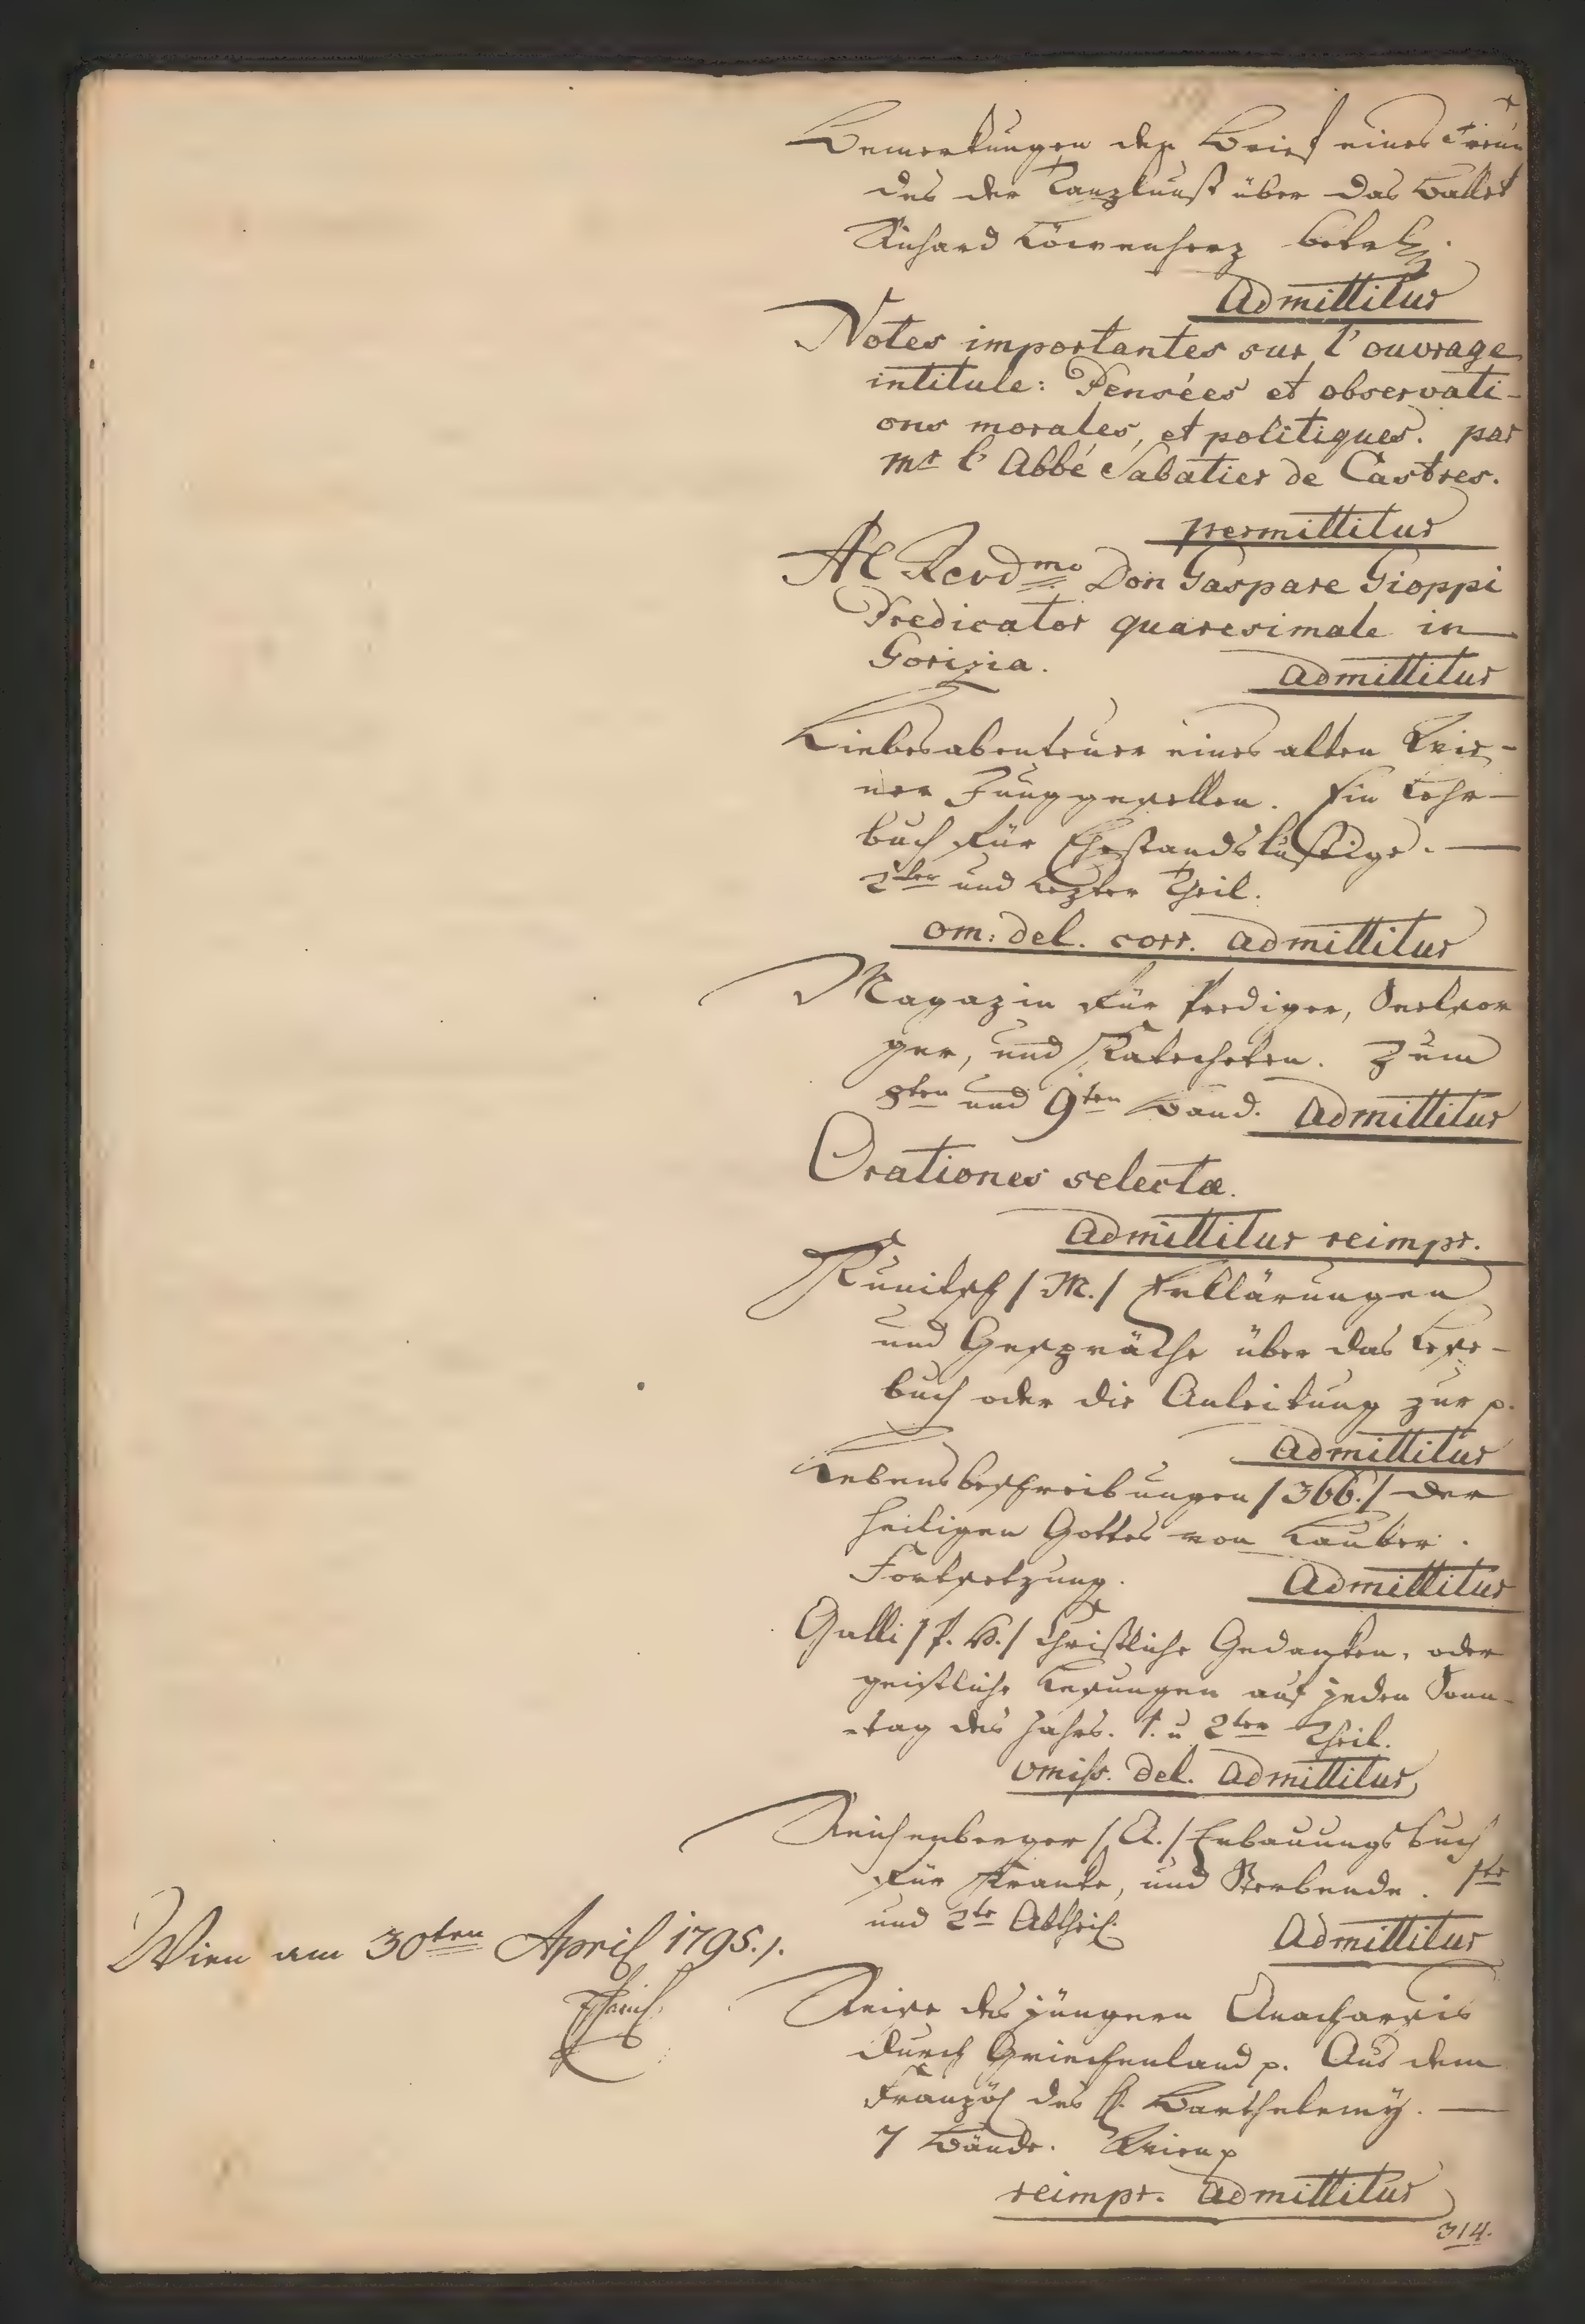 Bemerkungen den Brief eines Freun
des der Tanzkunst über das Ballet
Richard Löwenherz betrl.
Admittitur
Notes importantes sur l'ouvrage
intitule: Pensées et observati-
ons morales, et politiques. par
Mr l'Abbé Sabatier de Castres.
permittitur
Al Revdmo Don Gaspare Gioppi
Predicator quaresimale in
Gorizia.
admittitur
Liebesabenteuer eines alten Wie-
ner Junggesellen. Ein Lehr-
buch für Ehestandslustige.
2ter und lezter Theil.
om: del. corr. admittitur
Magazin für Prediger, Seelsor
ger, und Katecheten. Zum
8ten und 9ten Band. Admittitur
Orationes selectæ.
admittitur reimpr.
Kunitsch /M./ Erklärungen
und Gespräche über das Lese-
buch oder die Anleitung zur p.
admittitur
Lebensbeschreibungen /366./ der
Heiligen Gottes von Lauber.
Fortsetzung.
Admittitur
Galli /P. B./ Christliche Gedanken, oder
geistliche Lesungen auf jeden Sonn-
-tag des Jahrs. 1. u 2ter Theil.
omiss. del. admittitur
Reichenberger /A./ Erbauungsbuch
für Kranke, und Sterbende. 1te
und 2te Abtheil.
Admittitur
Wien am 30ten April 1795./.
Reise des jüngern Anacharsis
durch Griechenland p. Aus dem
Französ des H. Barthelemÿ.
7 Bände. Wien p
reimpr. admittitur
314.